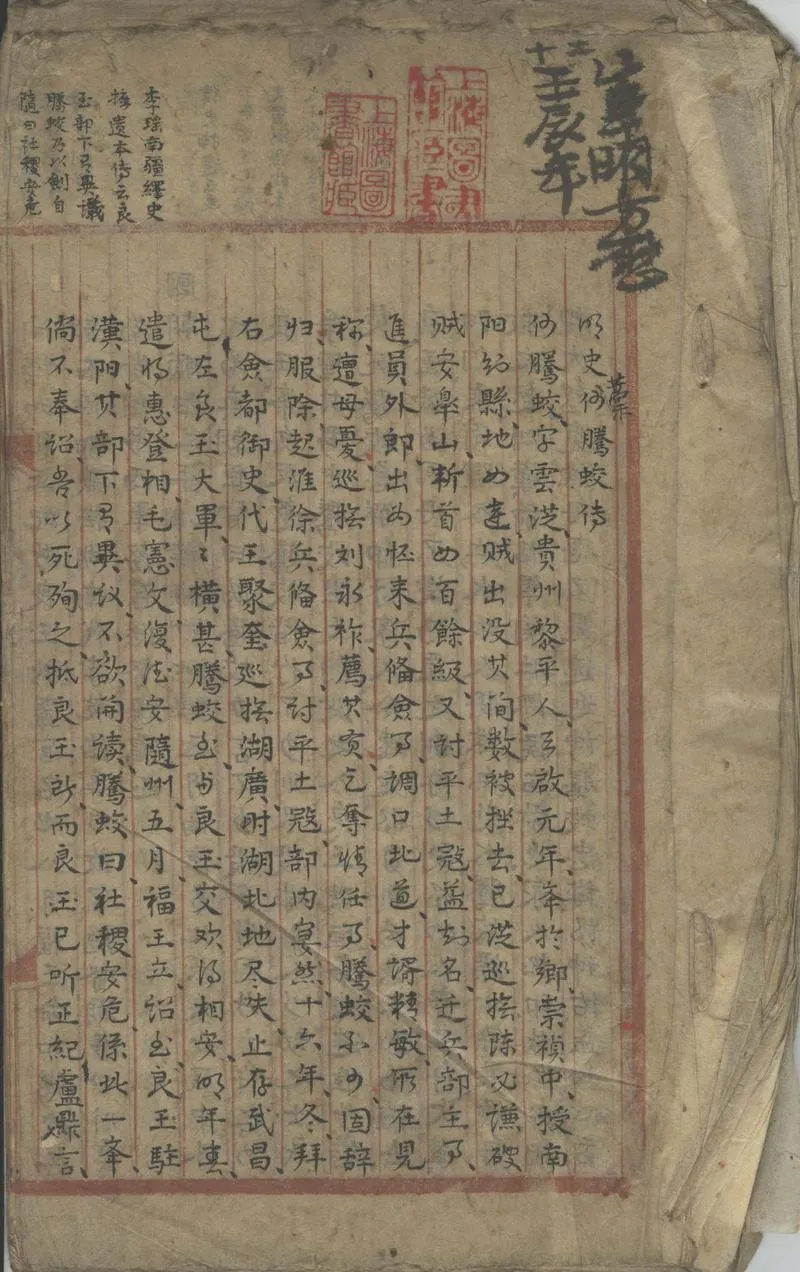 十三
壬辰年
上海圖書館藏書
上海圖書館藏
李瑶南疆繹史
摭遺本传云良
玉部下有異議
騰蛟乃以劍自
隨曰社稷安危
明史藁何騰蛟傳
何騰蛟字雲從貴州黎平人天啟元年舉於鄉崇禎中授南
阳知縣地四達贼出没其间数被挫去已從巡撫陈必謙破
贼安皋山斬首四百餘級又討平土冦益知名迁兵部主事
進員外郎出为怀来兵備僉事调口北道才谞精敏所在見
称遭母憂巡撫刘永祚薦其贤乞奪情任事騰蛟不可固辞
归服除起淮徐兵備僉事讨平土冦部内宴然十六年冬拜
右僉都御史代王聚奎巡撫湖廣时湖北地尽失止存武昌
屯左良玉大軍々横甚騰蛟至与良玉交欢得相安明年春
遣将惠登相毛憲文復德安隨州五月福王立诏至良玉駐
漢阳其部下有異议不欲開读騰蛟曰社稷安危係此一舉
倘不奉诏吾以死殉之抵良玉所而良玉已听正紀盧鼎言